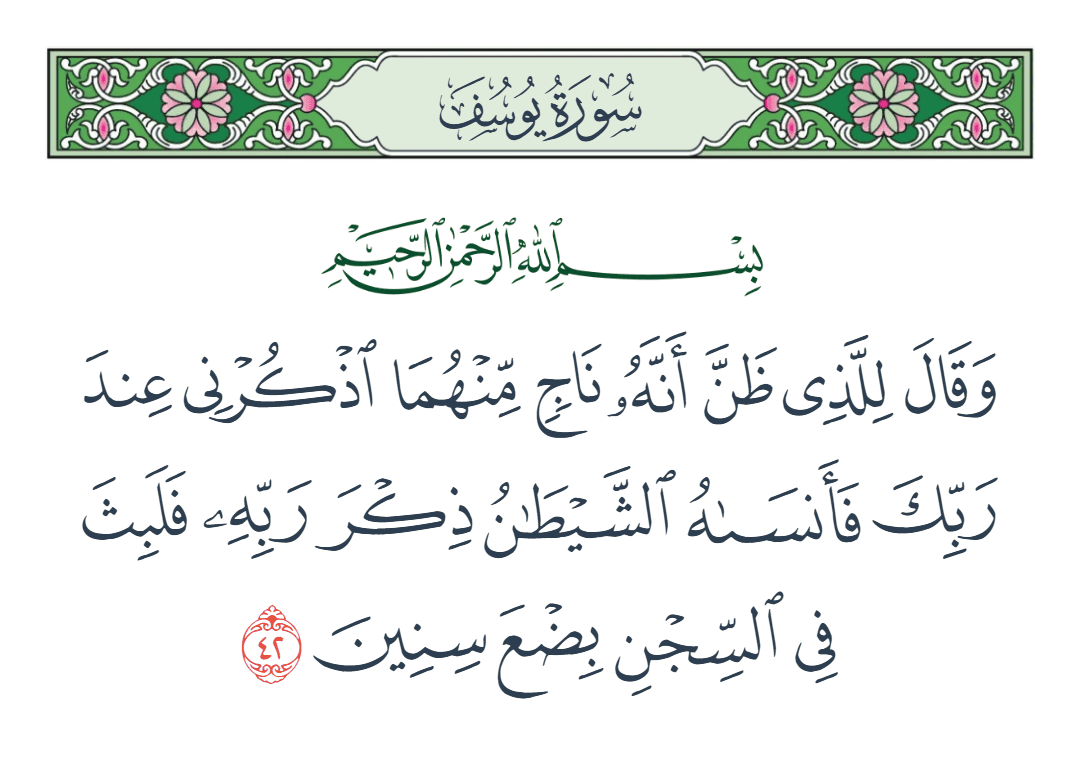 سُورَةُ يُوسُفَ
بِسْمِ ٱللَّهِ ٱلرَّحْمَٰنِ ٱلرَّحِيمِ
وَقَالَ لِلَّذِى ظَنَّ أَنَّهُۥ نَاجٍ مِّنْهُمَا ٱذْكُرْنِى عِندَ
رَبِّكَ فَأَنسَىٰهُ ٱلشَّيْطَٰنُ ذِكْرَ رَبِّهِۦ فَلَبِثَ
فِى ٱلسِّجْنِ بِضْعَ سِنِينَ ٤٢